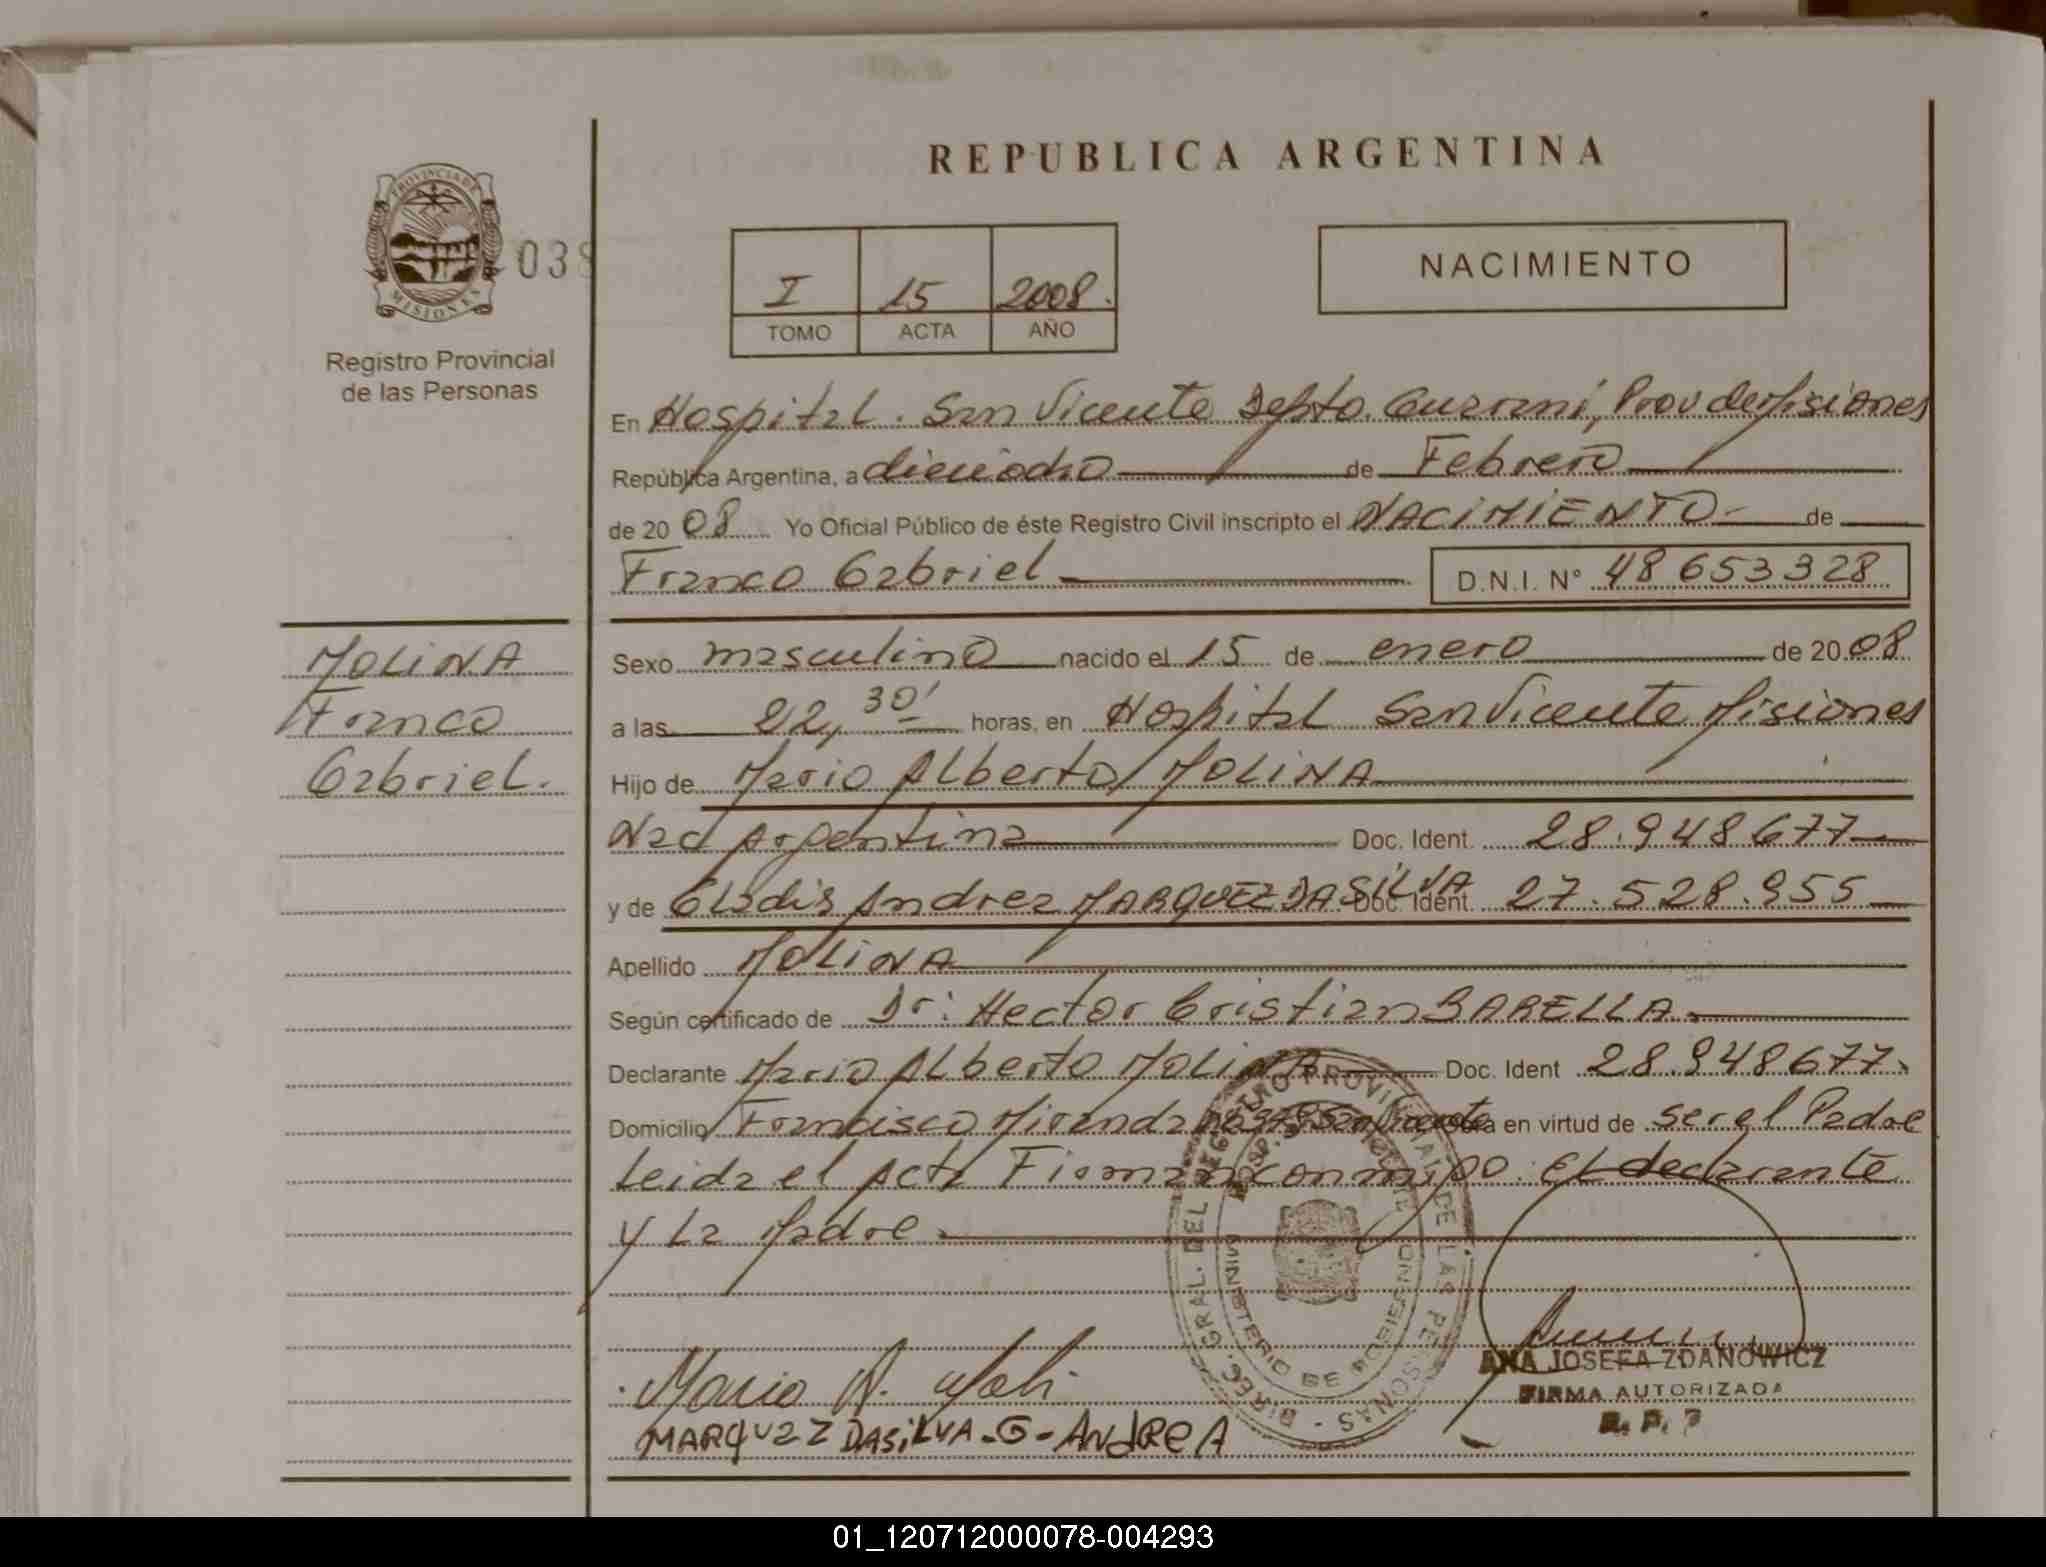 REPUBLICA ARGENTINA
PROVINCIA DE
MISIONES
038
Registro Provincial
de las Personas
I 15 2008.
TOMO ACTA AÑO
NACIMIENTO
En Hospital. San Vicente Depto. Guarani, Prov de Misiones
República Argentina, a dieciocho de Febrero
de 20 08 Yo Oficial Público de éste Registro Civil inscripto el NACIMIENTO - de
Franco Gabriel D.N.I. N° 48 653 328
MOLINA
Franco
Gabriel.
Sexo masculino nacido el 15 de enero de 20 08
a las 22, 30' horas, en Hospital San Vicente Misiones
Hijo de Mario Alberto MOLINA
Nac Argentina Doc. Ident. 28.948677
y de Gladis Andrea MARQUEZ DA SILVA Doc. Ident. 27.528.955
Apellido MOLINA
Según certificado de Dr: Hector Cristian BARELLA.
Declarante Mario Alberto MOLINA Doc. Ident 28.948677.
Domicilio Francisco Miranda San Vicente en virtud de ser el Padre
Leida el Acta Firman conmigo. El declarante
y La Madre
DIREC. GRAL. DEL REGISTRO PROVINCIAL DE LAS PERSONAS
MINISTERIO DE GOBIERNO
Mario A. Moli
MARQUEZ DASiLVA-G-ANdReA
ANA JOSEFA ZDANOWICZ
FIRMA AUTORIZADA
R. P. P
01_120712000078-004293